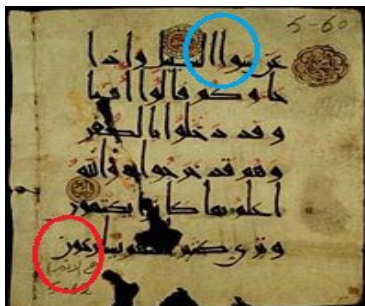 5-60
عن سوا السبيل واذا
جاوكم قالوا امنا
وقد دخلوا بالكفر
وهم قد خرجوا به والله
اعلم بما كانوا يكتمون
وترى كثيرا منهم يسارعون